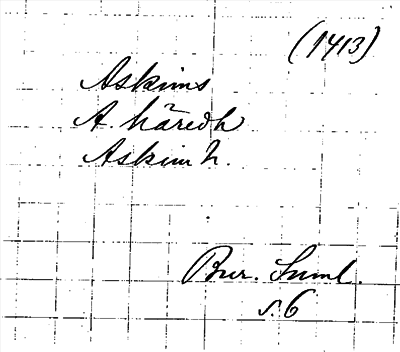 (1413)
Askims
A. häredh
Askim h.
Bur. Suml.
s. 6